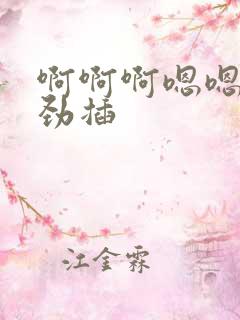 啊啊啊嗯嗯
劲插
江金霖